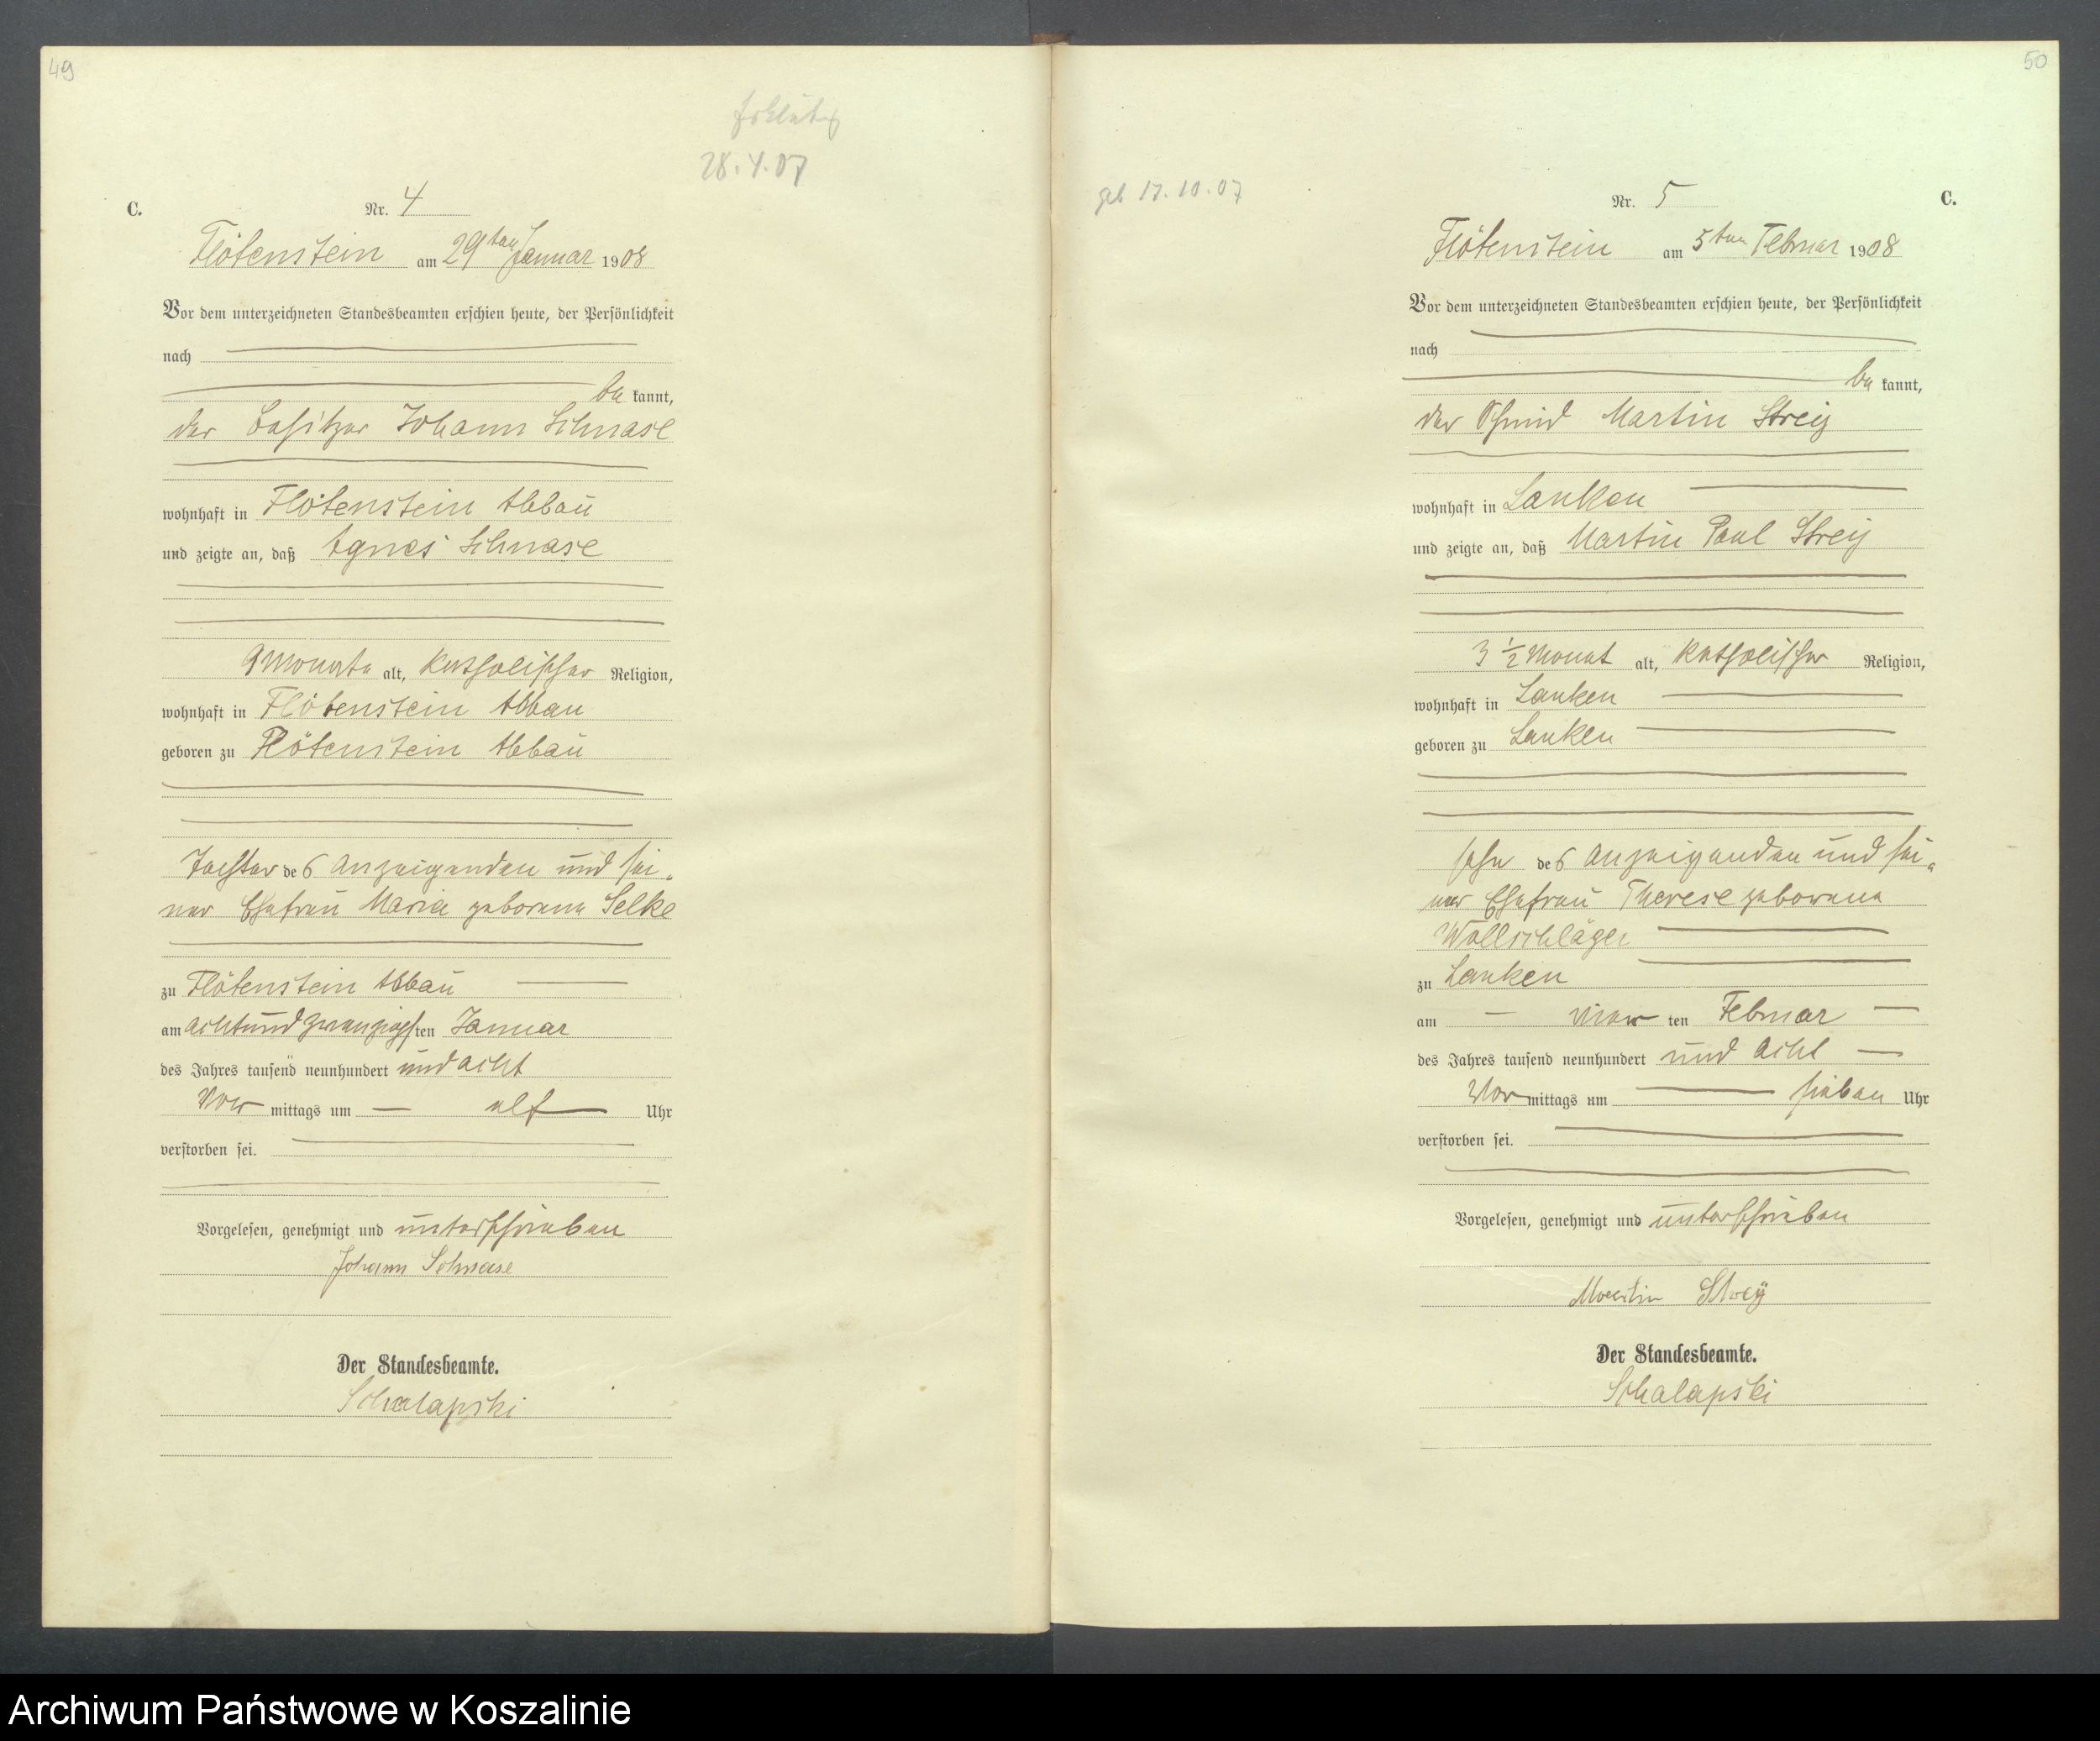 49
28.4.07
C.
Nr. 4
Flötenstein am 29ten Januar 1908
Vor dem unterzeichneten Standesbeamten erschien heute, der Persönlichkeit
nach
be kannt,
der Besitzer Johann Schnase
wohnhaft in Flötenstein Abbau
und zeigte an, daß Agnes Schnase
9 Monate alt, katholischer Religion,
wohnhaft in Flötenstein Abbau
geboren zu Flötenstein Abbau
Tochter des Anzeigenden und sei-
ner Ehefrau Maria geborene Selke
zu Flötenstein Abbau
am achtundzwanzigsten Januar
des Jahres tausend neunhundert und acht
Vor mittags um elf Uhr
verstorben sei.
Vorgelesen, genehmigt und unterschrieben
Johann Schnase
Der Standesbeamte.
Schalapski
50
geb 17.10.07
Nr. 5
C.
Flötenstein am 5ten Februar 1908
Vor dem unterzeichneten Standesbeamten erschien heute, der Persönlichkeit
nach
be kannt,
der Schmid Martin Streij
wohnhaft in Lanken
und zeigte an, daß Martin Paul Streij
3 1/2 Monat alt, katholischer Religion,
wohnhaft in Lanken
geboren zu Lanken
Sohn des Anzeigenden und sei-
ner Ehefrau Therese geborene
Wollschläger
zu Lanken
am vier ten Februar
des Jahres tausend neunhundert und acht
Vor mittags um sieben Uhr
verstorben sei.
Vorgelesen, genehmigt und unterschrieben
Martin Streÿ
Der Standesbeamte.
Schalapski
Archiwum Państwowe w Koszalinie